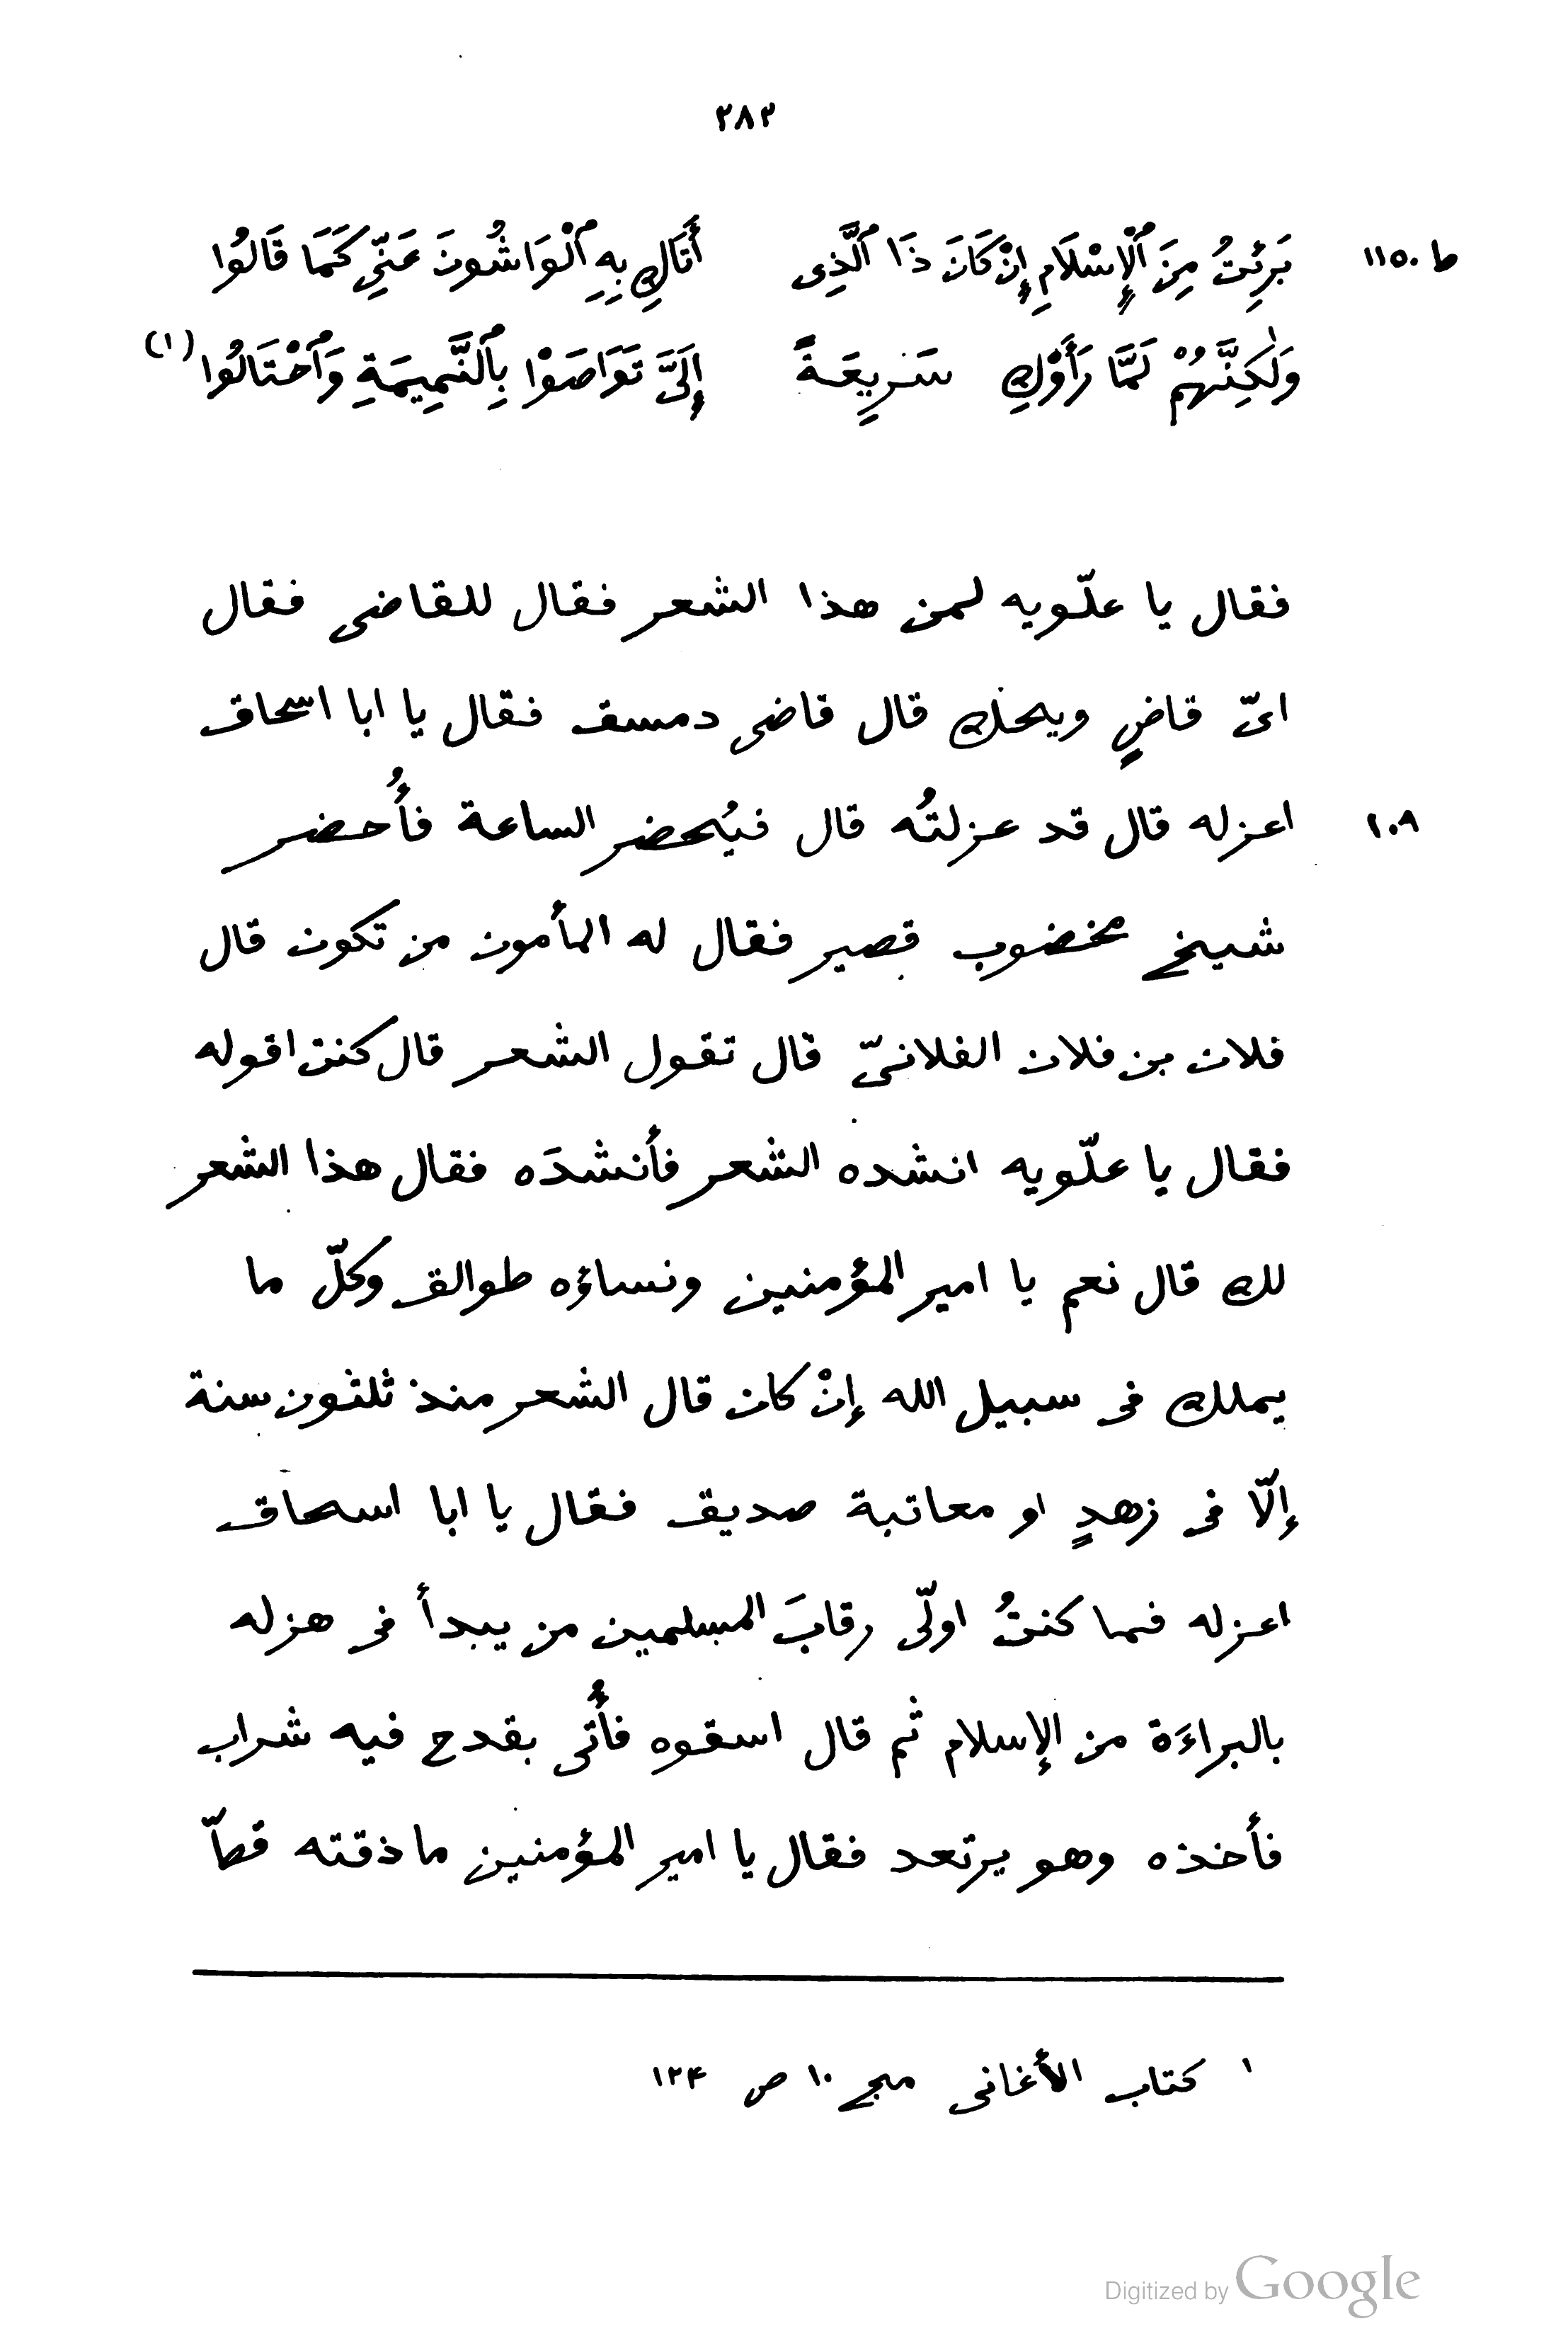 ٢٨٣
ط ١١٥٠ بَرِئتُ مِنَ ٱلْإِسْلَامِ إِنْ كَانَ ذَا ٱلَّذِى أَتَاكِ بِهِ ٱلْوَاشُونَ عَنِّى كَمَا قَالُوا
وَلٰكِنَّهُمْ لَمَّا رَأَوْكِ سَرِيعَةً إِلَىَّ تَوَاصَوْا بِٱلنَّمِيمَةِ وَٱحْتَالُوا (١)
فقال يا علّويه لمن هذا الشعر فقال للقاضى فقال
اىّ قاضٍ ويحك قال قاضى دمسق فقال يا ابا اسحاق
١٠٩ اعزله قال قد عزلتُه قال فيُحضر الساعة فأُحضر
شيخ مخضوب قصير فقال له المأمون من تكون قال
فلان بن فلان الفلانىّ قال تقول الشعر قال كنت اقوله
فقال يا علّويه انشده الشعر فأنشدَه فقال هذا الشعر
لك قال نعم يا امير المؤمنين ونساؤه طوالق وكلّ ما
يملك فى سبيل الله إنْ كان قال الشعر منذ ثلثون سنة
إلّا فى زهدٍ او معاتبة صديق فقال يا ابا اسحاق
اعزله فما كنتُ اولّى رقابَ المسلمين من يبدأ فى هزله
بالبراءَة من الإسلام ثم قال اسقوه فأُتى بقدح فيه شراب
فأخذه وهو يرتعد فقال يا امير المؤمنين ما ذقته قطّ
١ كتاب الأغانى مج ١٠ ص ١٢۴
Digitized by Google